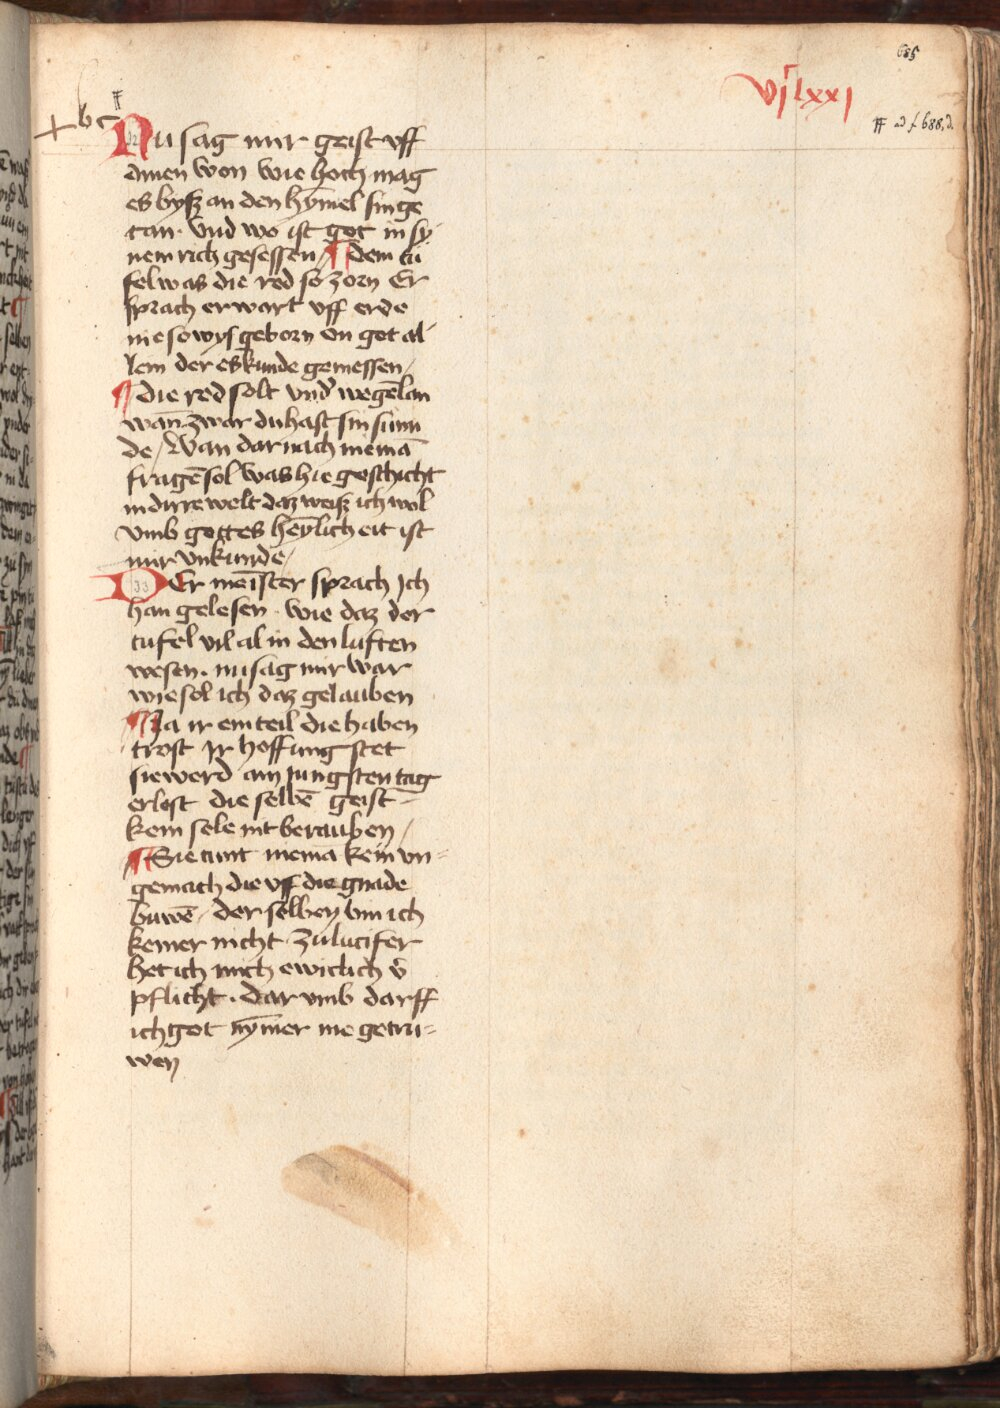 685
vjclxxj
# ad f 688, d.
#
+ b c
Nu sag mir geist vff
dinen won wie hoch mag
es bysz an den hymel sin ge
tan · vnd wo ist got in sy
nem rich gesessen / ¶ dem tu
fel was die red so zorn Er
sprach er wart vff erde
nie so wys geborn on got al
lem der es kunde gemessen /
¶ die red solt vnd' wegē lan
wañ zwar du hast sin sunn
de / Wan dar nach niemā
fragē sol was hie geschicht
in dirre welt daz weisz ich wol
vmb gottes heylicheit ist
mir vnkunde /
DEr meister sprach Ich
han gelesen · wie daz der
tufel vil al in den luften
wesen · nu sag mir war
wie sol ich daz gelauben
¶ Ja ir ein teil die haben
trost Ir hoffnung stet
sie werd am Jungsten tag
erlost die selbē geist
kein sele nit berauben /
¶ Sie tunt niemā kein vn
gemach die vff die gnade
buwē / der selben bin ich
keiner nicht · zu lucifer
het ich mich ewiclich v̄
pflicht · dar vmb darff
ich got nȳmer me getru
wen